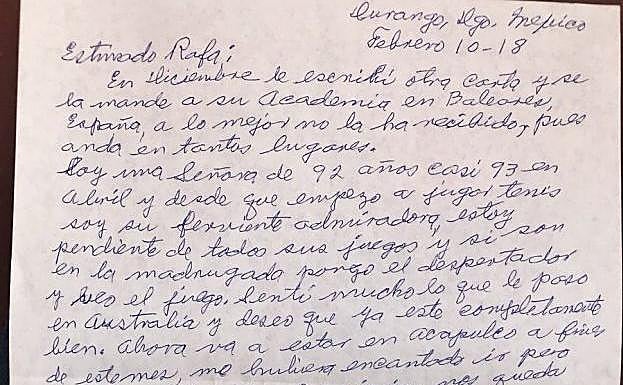 Durango, Dgo. Mexico
Febrero 10-18
Estimado Rafa;
En Diciembre le escribí otra carta y se
la mande a su Academia en Baleares,
España, a lo mejor no la ha recibido, pues
anda en tantos lugares.
Soy una Señora de 92 años casi 93 en
Abril y desde que empezo a jugar tenis
soy su ferviente admiradora, estoy
pendiente de todos sus juegos y si son
en la madrugada pongo el despertador
y veo el juego. Sentí mucho lo que le paso
en Australia y deseo que ya este completamente
bien. Ahora va a estar en Acapulco a fines
de este mes, me hubiera encantado ir pero
nos queda